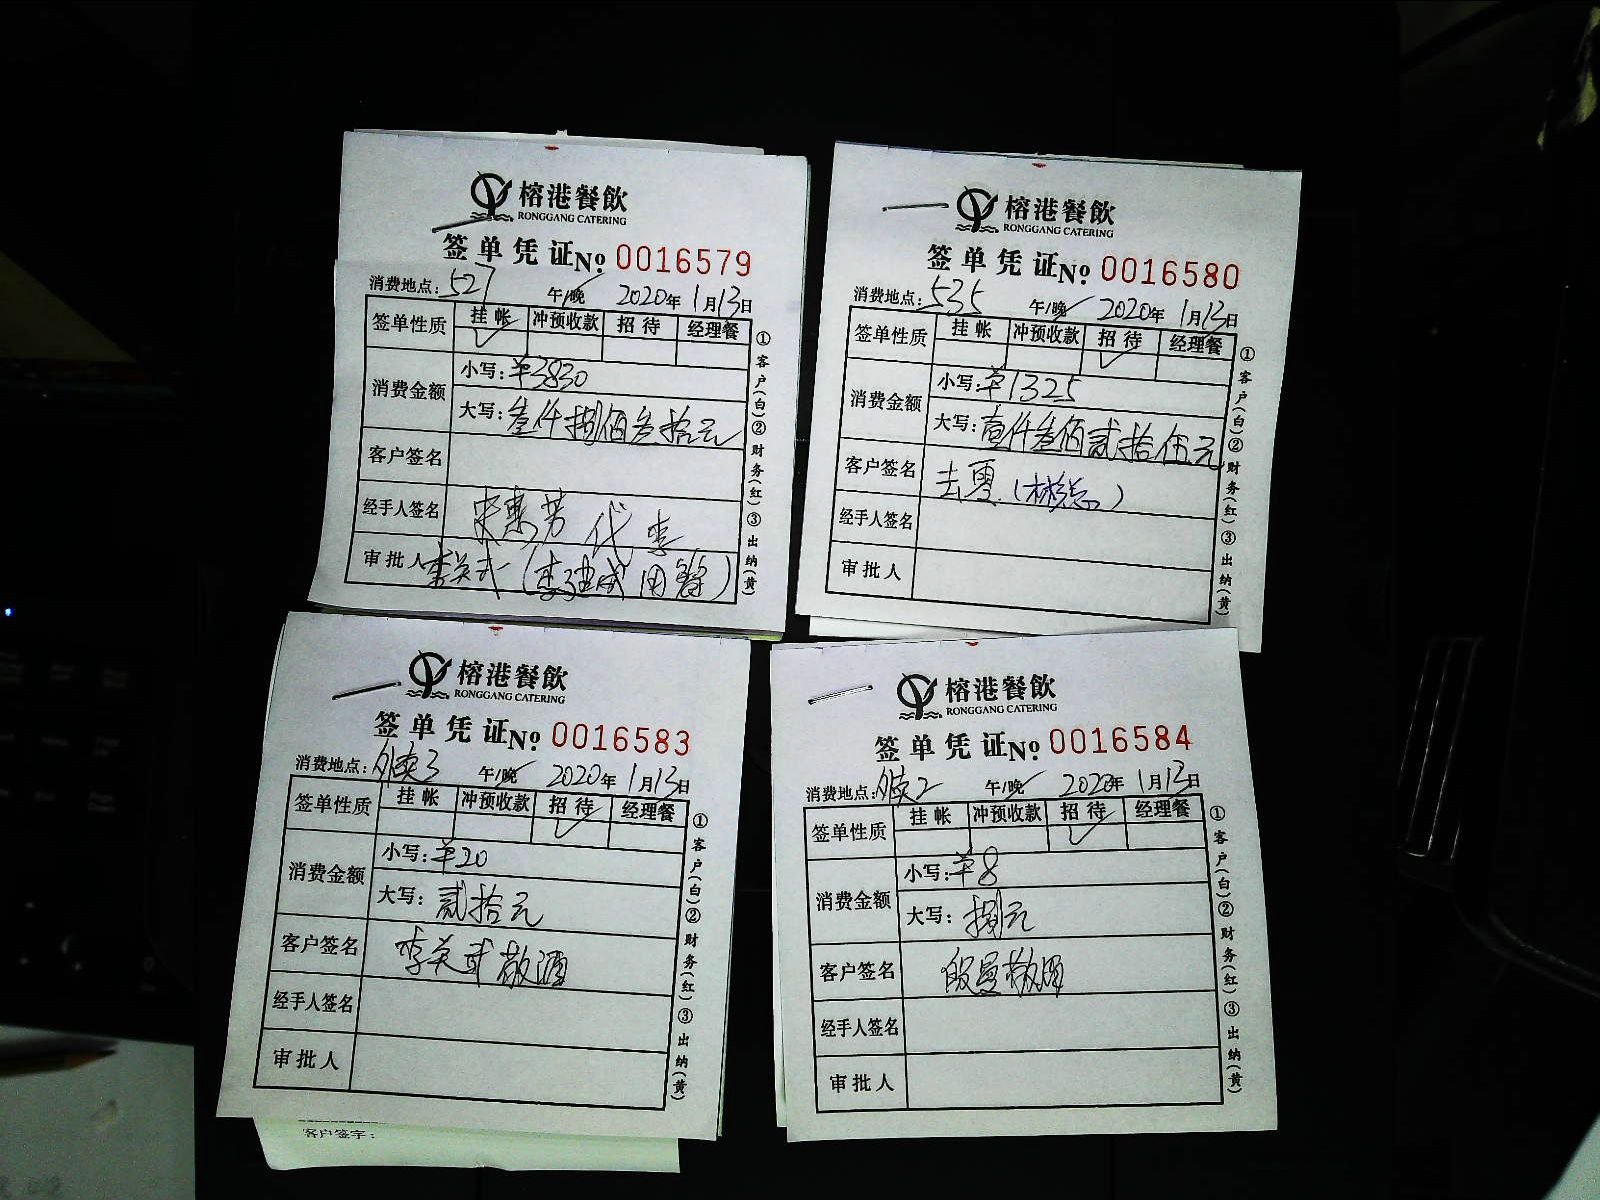 榕港餐飲
RONGGANG CATERING
签单凭证 No 0016579
消费地点: 527 午/晚 2020年1月13日
签单性质 挂帐 冲预收款 招待 经理餐
消费金额 小写: ¥3830
大写: 叁仟捌佰叁拾元
客户签名
经手人签名 宋惠芳代李
审批人 李关式(李建成用餐)
①客户(白)②财务(红)③出纳(黄)
榕港餐飲
RONGGANG CATERING
签单凭证 No 0016580
消费地点: 535 午/晚 2020年1月13日
签单性质 挂帐 冲预收款 招待 经理餐
消费金额 小写: ¥1325
大写: 壹仟叁佰贰拾伍元
客户签名 去零(林总)
经手人签名
审批人
①客户(白)②财务(红)③出纳(黄)
榕港餐飲
RONGGANG CATERING
签单凭证 No 0016583
消费地点: 外卖3 午/晚 2020年1月13日
签单性质 挂帐 冲预收款 招待 经理餐
消费金额 小写: ¥20
大写: 贰拾元
客户签名 李关式敬酒
经手人签名
审批人
①客户(白)②财务(红)③出纳(黄)
客户签字:
榕港餐飲
RONGGANG CATERING
签单凭证 No 0016584
消费地点: 外卖2 午/晚 2020年1月13日
签单性质 挂帐 冲预收款 招待 经理餐
消费金额 小写: ¥8
大写: 捌元
客户签名 敬酒
经手人签名
审批人
①客户(白)②财务(红)③出纳(黄)